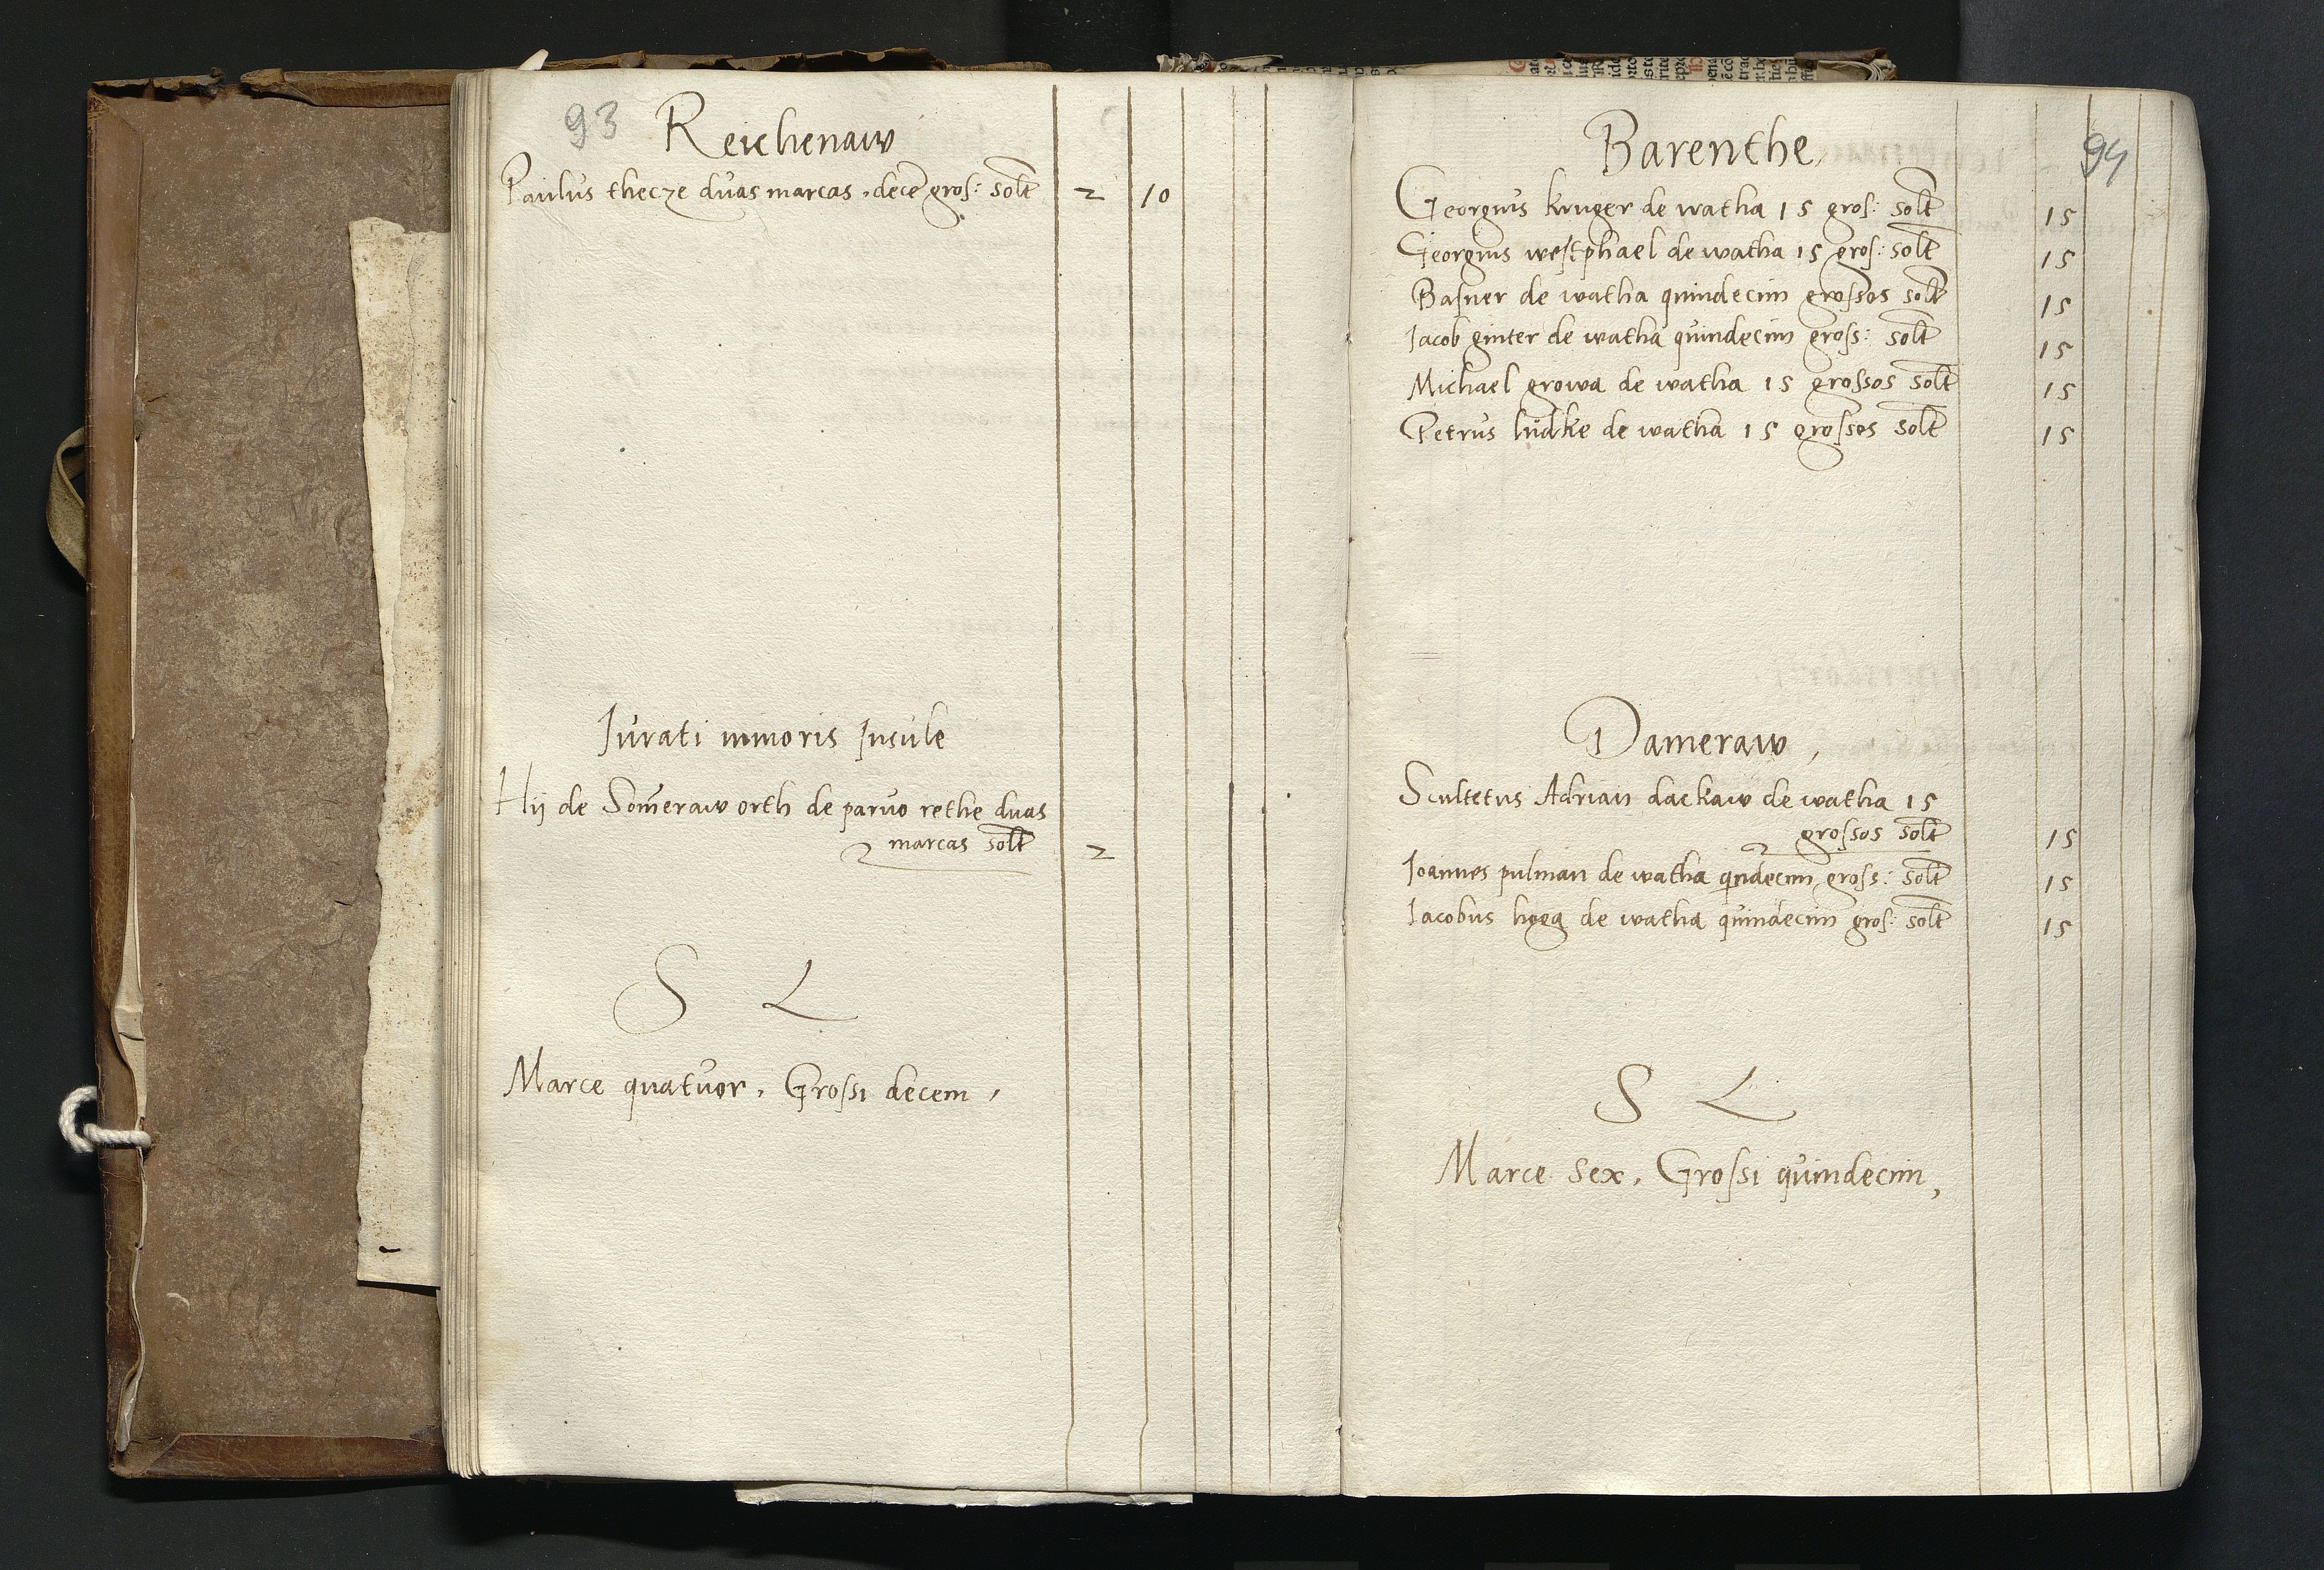 93
Reichenaw
Paulus thecze duas marcas, decē gros: solt 2 10
Jurati minoris Insule
Hij de Som̄eraw orth de paruo rethe duas
marcas solt 2
S L
Marce quatuor, Grossi decem,
94
Barenthe,
Georgius kruger de watha 15 gros: solt 15
Georgius westphael de watha 15 gros: solt 15
Basner de watha quindecim grossos solt 15
Jacob ginter de watha quindecim gross: solt 15
Michael growa de watha 15 grossos solt 15
Petrus lüdke de watha 15 grossos solt 15
Dameraw,
Scultetus Adrian dackaw de watha 15
grossos solt 15
Joannes pulman de watha qndecim gross: solt 15
Jacobus hoeg de watha quindecim gros: solt 15
S L
Marce sex, Grossi quindecim,